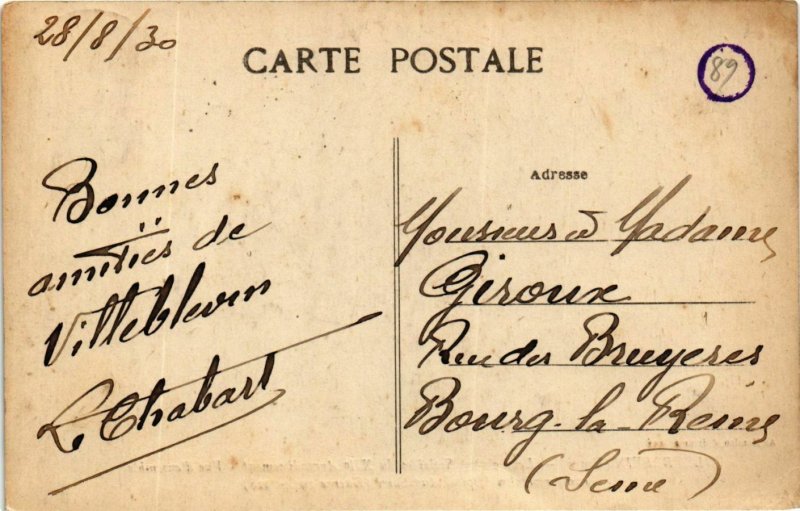 28/8/30
CARTE POSTALE
89
Bonnes
amitiés de
Villeblevin
L. Chabart
Adresse
Monsieur et Madame
Giroux
Rue des Bruyeres
Bourg-la-Reine
(Seine)